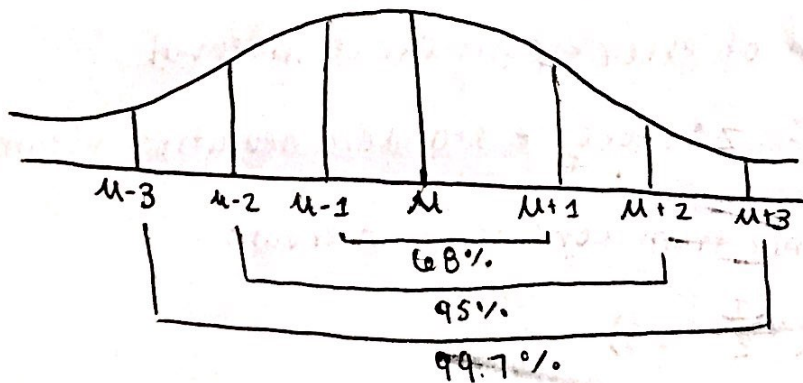 μ-3 μ-2 μ-1 μ μ+1 μ+2 μ+3
68%
95%
99.7%